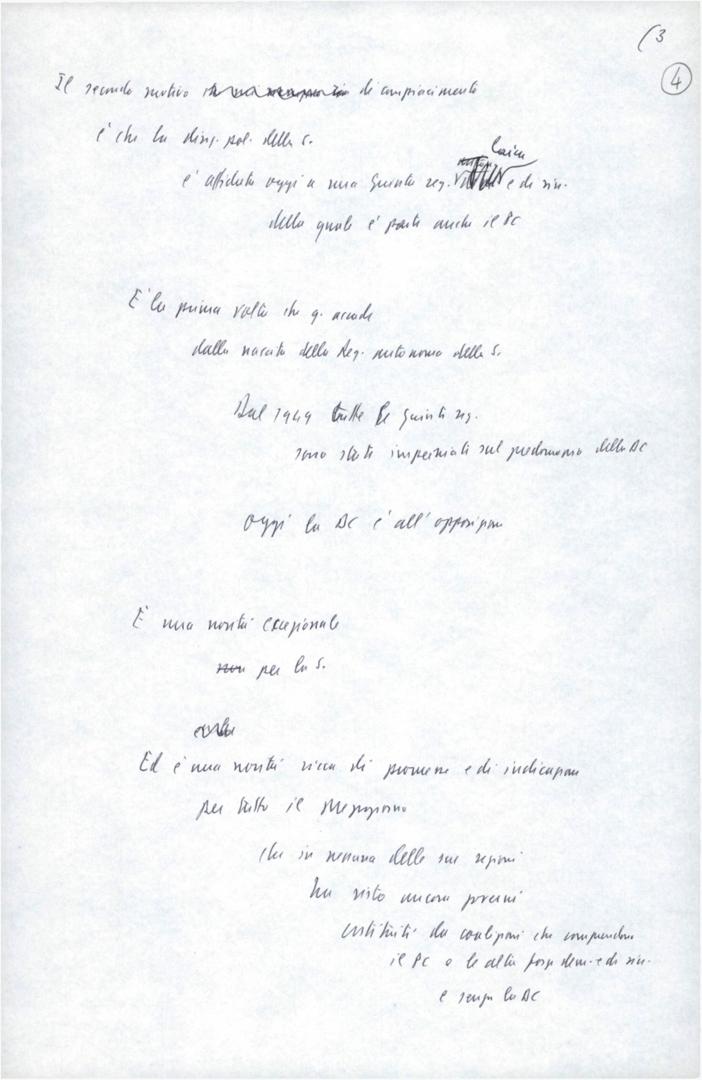 (3
4
Il secondo motivo di compiacimento
è che la direz. pol. della S.
laica
è affidata oggi a una Giunta reg. e di sin.
della quale è parte anche il PC
È la prima volta che q. accade
dalla nascita della Reg. autonoma della S.
Dal 1949 tutte le Giunte reg.
sono state imperniate sul predominio della DC
Oggi la DC è all'opposizione
È una novità eccezionale
non per la S.
Ed è una novità ricca di promesse e di indicazioni
per tutto il Mezzogiorno
che in nessuna delle sue regioni
ha visto ancora governi
costituiti da coalizioni che comprendono
il PC e le altre forze dem. e di sin.
e senza la DC